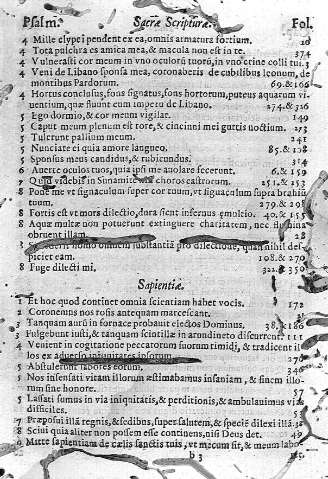 Psalm. Sacræ Scripturæ. Fol.
4 Mille clypei pendent ex ea, omnis armatura fortium.
4 Tota pulchra es amica mea, & macula non est in te. 374
4 Vulnerasti cor meum in vno oculorũ tuorũ, in vno crine colli tui.
4 Veni de Libano sponsa mea, coronaberis de cubilibus leonum, de
montibus Pardorum. 69. & 106
4 Hortus conclusus, fons signatus, fons hortorum, puteus aquarum vi-
uentium, quæ fluunt cum impetu de Libano. 274. & 326
5 Ego dormio, & cor meum vigilat. 149
5 Caput meum plenum est rore, & cincinni mei guttis noctium. 273
5 Tulerunt pallium meum. 241
5 Nunciate ei quia amore langueo. 85. & 128
5 Sponsus meus candidus, & rubicundus. 314
6 Auerte oculos tuos, quia ipsi me auolare fecerunt. 6. & 159
7 Quid videbis in Sunamite nisi choros castrorum. 251. & 253
8 Pone me vt signaculum super cor tuum, vt signaculum supra brahiũ
tuum. 279. & 298
8 Fortis est vt mors dilectio, dura sicut infernus emulatio. 40. & 155
8 Aquæ multæ non potuerunt extinguere charitatem, nec flumina
obruent illam.
domus suæ substantiã pro dilectione, quasi nihil des-
piciet eam. 108. & 270
8 Fuge dilecti mi. 322. & 350
Sapientiæ.
1 Et hoc quod continet omnia scientiam habet vocis. 172
2 Coronemus nos rosis antequam marcescant.
3 Tanquam aurũ in fornace probauit electos Dominus. 38. & 186
3 Fulgebunt iusti, & tanquam scintillæ in arundineto discurrent. 111
4 Venient in cogitatione peccatorum suorum timidi, & tradicent il
los ex aduerso iniquitates ipsorum. 270
5 Abstulerunt labores eorum. 346
5 Nos insensati vitam illorum æstimabamus insaniam, & finem illo-
rum sine honore.
5 Lassati sumus in via iniquitatis, & perditionis, & ambulauimus vias
difficiles.
7 Præposui illã regnis, & sedibus, super salutem, & speciẽ dilexi illã.
8 Sciui quia aliter non possem esse continens, nisi Deus det. 49
9 Mitte sapientiam de cælis sanctis tuis, vt mecum sit, & mecum labo
b 3